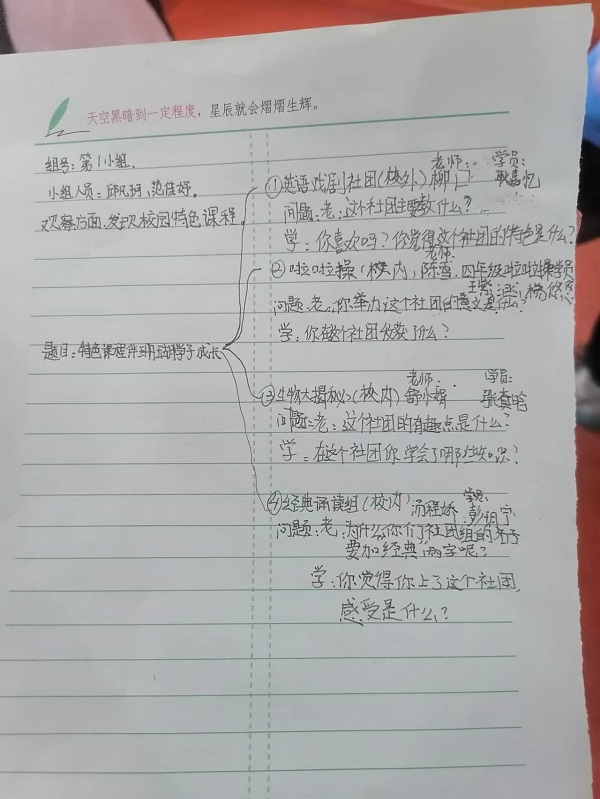 天空黑暗到一定程度，星辰就会熠熠生辉。
组号：第1小组.
小组人员：邱凡珂,范佳妤。
观察方面,发现校园特色课程。
题目：特色课程伴明珺学子成长
老师： 学员：
①英语戏剧社团(校外) 柳
问题：老：这个社团主要教什么？
学：你喜欢吗？你觉得这个社团的特色是什么？
老师：
②啦啦操（校内）陈雪. 四年级啦啦操学员
问题：老：你举办这个社团的意义是什么？
学：你在这个社团收获了什么？
老师： 学员：
③生物大揭秘(校内) 舒小娟
问题：老：这个社团的有趣点是什么？
学：在这个社团你学会了哪些知识？
学员：
④经典诵读组（校内）
问题：老：为什么你们社团组的名字
要加“经典”两字呢？
学：你觉得你上了这个社团，
感受是什么？